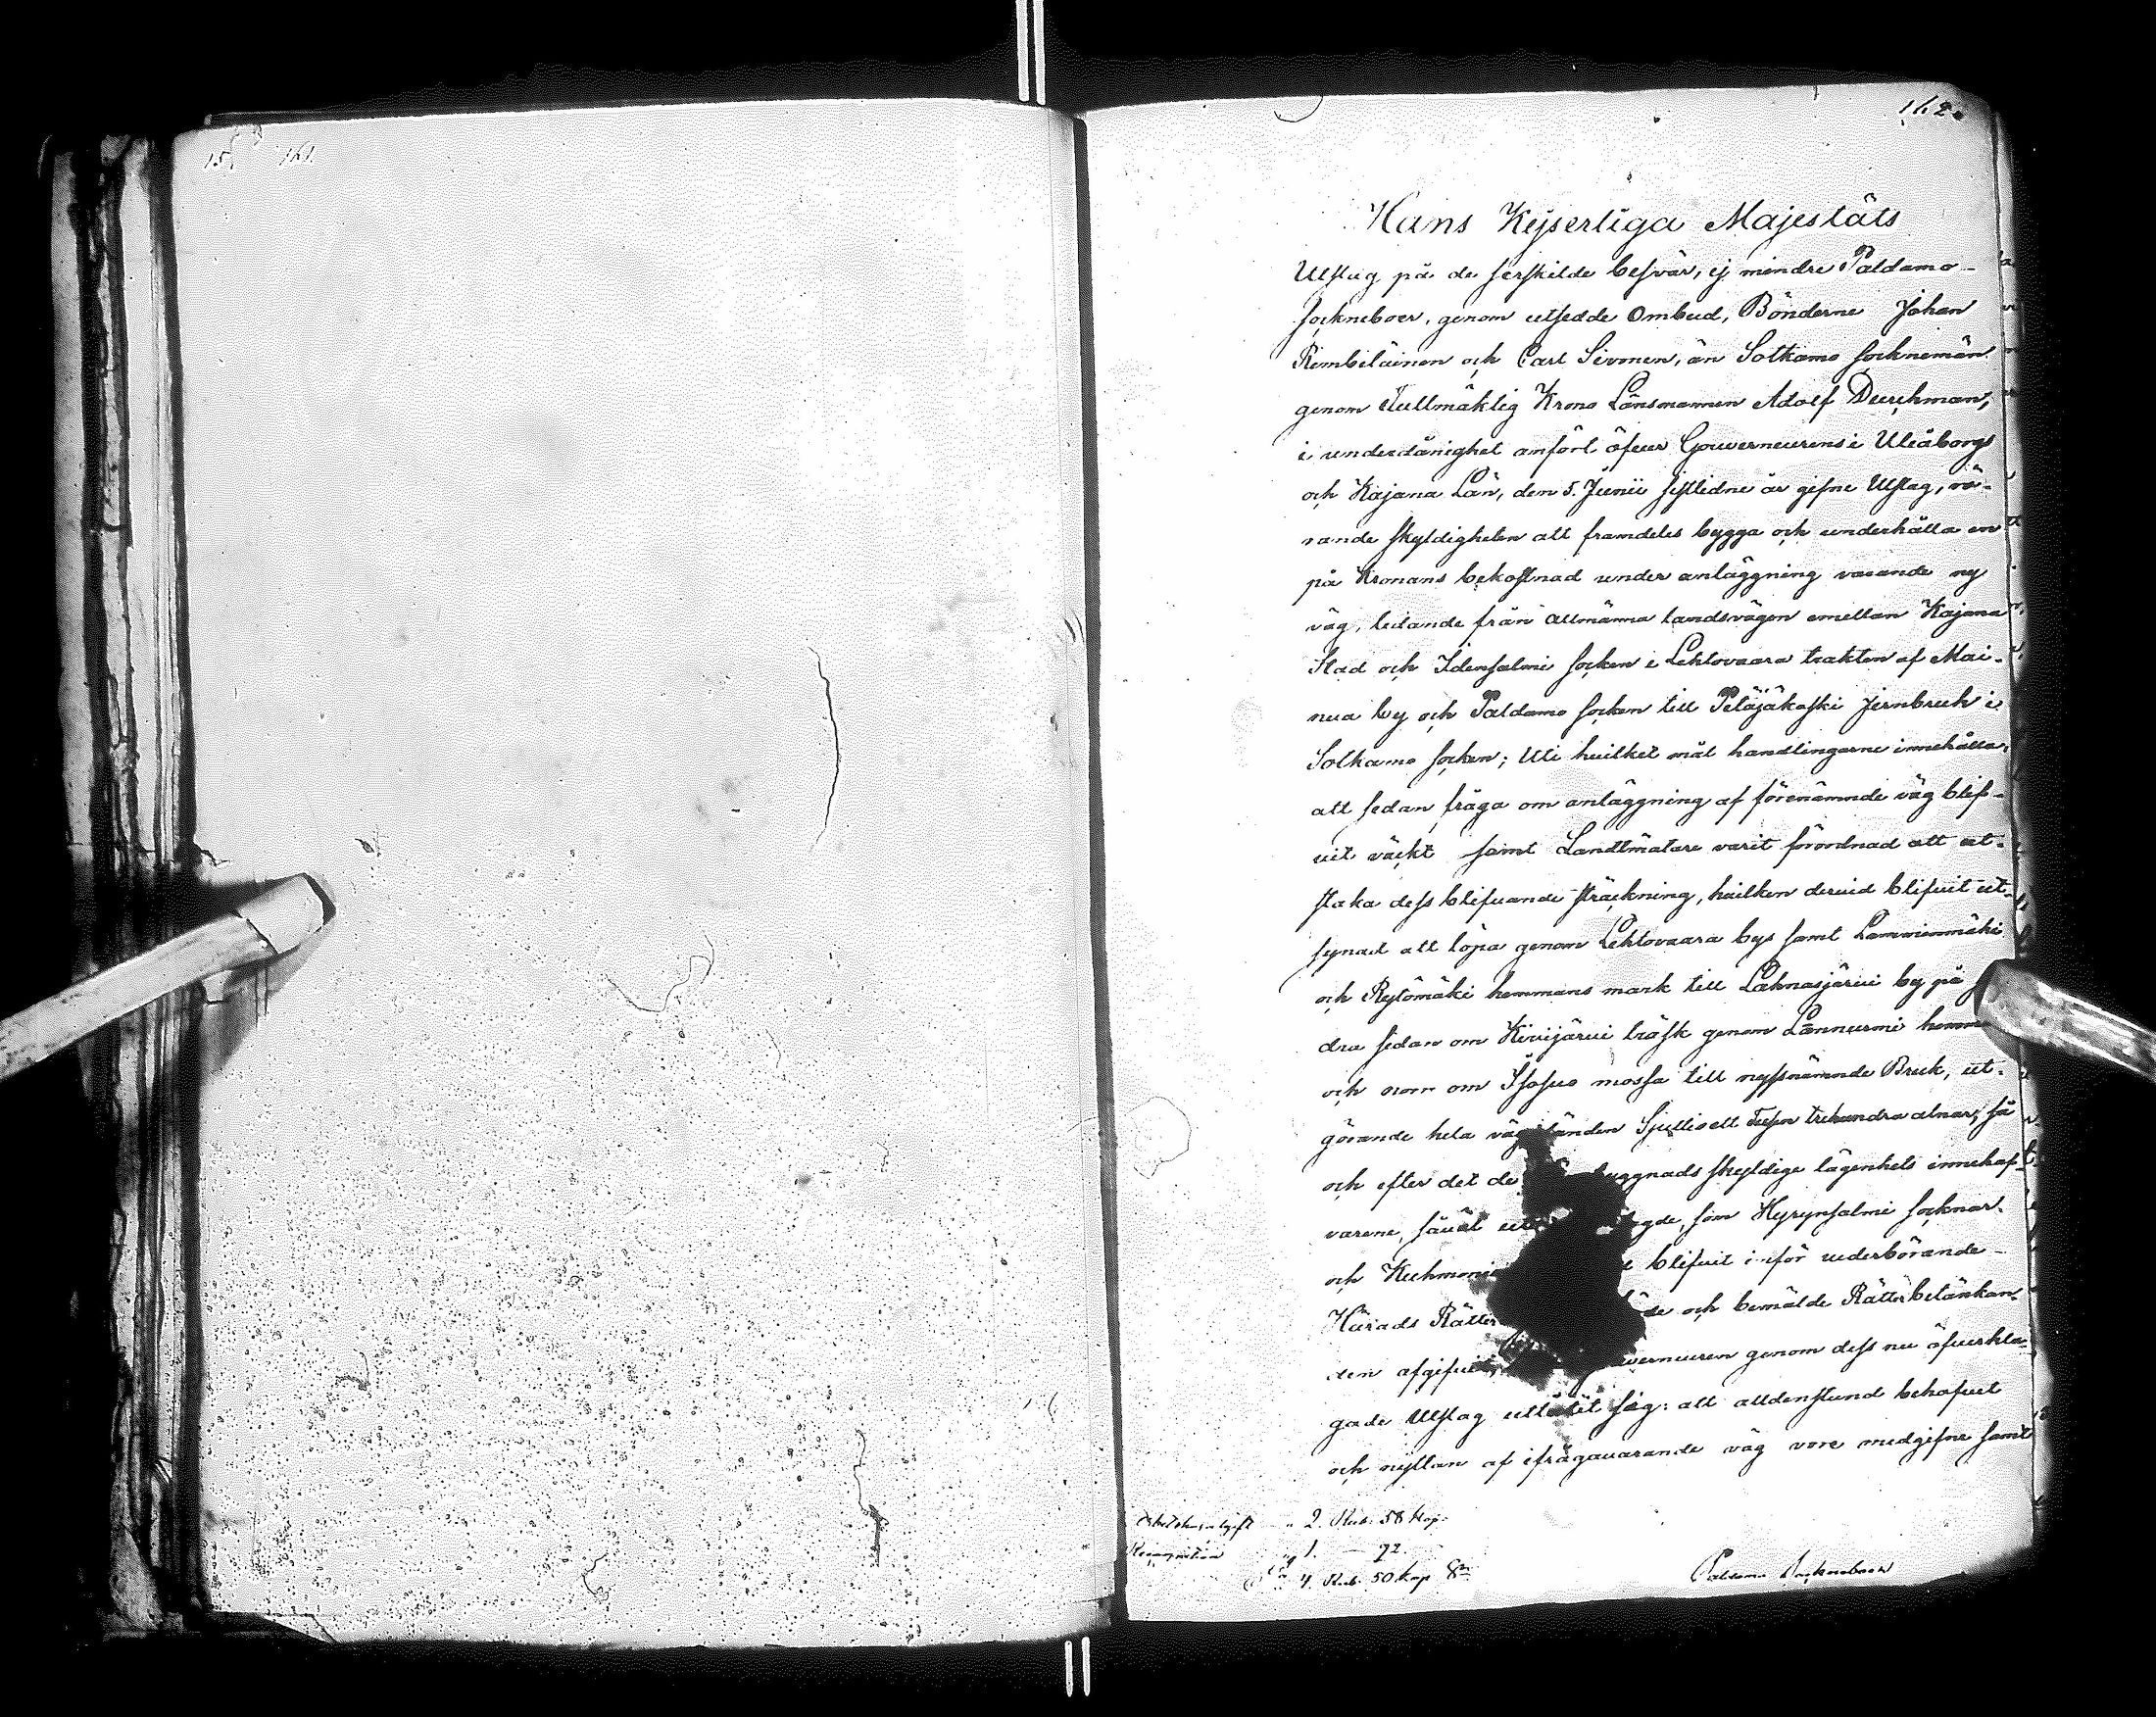 15. 161.
162.
Hans Kejserliga Majestäts
Utslag på de serskilde besvär, ej mindre Paldamo
Sockneboer, genom utsedde Ombud, Bönderne Johan
Rembeläinen och Carl Sivonen, än Sotkamo socknemän
genom Fullmäktig Krono Länsmannen Adolf Durchman,
i underdånighet anfört öfver Gouverneurens i Uleåborgs
och Kajana Län, den 5. Junii sistlidne år gifne Utslag, rö-
rande skyldigheten att framdeles bygga och underhålla en
på Kronans bekostnad under anläggning varande ny
väg, ledande från allmänna landsvägen emellan Kajana
Stad och Idensalmi socken i Lehtovaara trakten af Mai-
nua by och Paldamo socken till Petäjäkoski Jernbruk i
Sotkamo socken; Uti hvilket mål handlingarne innehålla,
att sedan fråga om anläggning af förenämnde väg blif-
vit väckt samt Landtmätare varit förordnad att ut-
staka dess blifvande sträckning, hvilken dervid blifvit ut-
synad att löpa genom Lehtovaara bys samt Lamminmäki
och Rytömäki hemmans mark till Lahnasjärvi by på
dra sidan om Kivijärvi träsk genom Lännurmi
och norr om Isosuo mossa till nyssnämnde Bruk, ut-
görande hela väg längden Sjuttioett Tusen trehundra alnar, så
och efter det de byggnads skyldige lägenhets innehaf-
varene, såväl som Hyrynsalmi socknar
och Kuhmoniemi blifvit inför vederbörande
Härads Rätter och bemälde Rätters betänkan-
den afgifvit, Gouverneuren genom dess nu öfverkla-
gade Utslag utlåtit sig: att alldenstund behofvet
och nyttan af ifrågavarande väg vore medgifne samt
2. Rub. 58 kop.
1. — 92.
4. Rub. 50 kop Sr
Paldamo Sockneboer